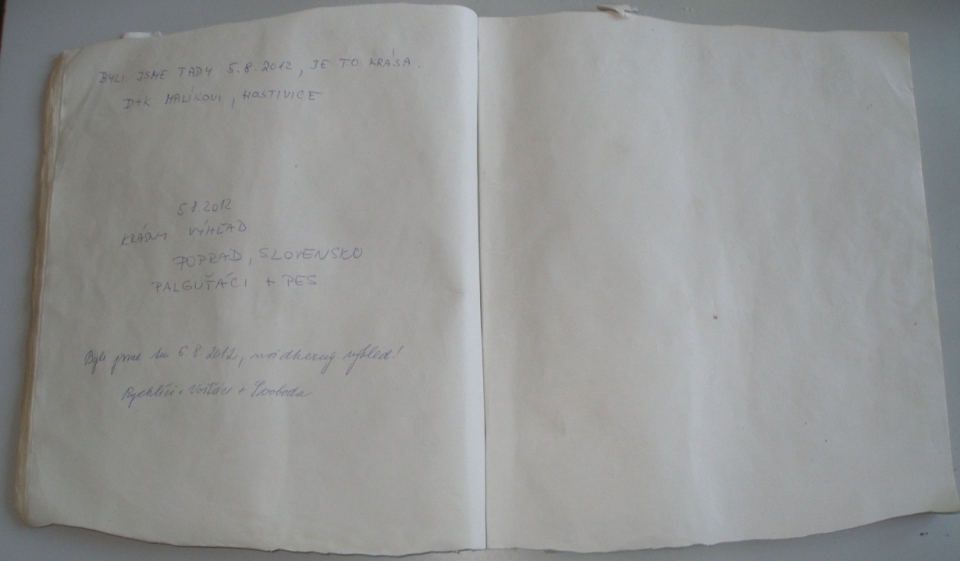 BYLI JSME TADY 5.8.2012, JE TO KRÁSA.
DYK MALÍKOVI, HOSTIVICE
5.8.2012
KRÁSNY VÝHĽAD
POPRAD, SLOVENSKO
PALGUŤÁCI + PES
Byli jsme tu 5.8.2012, nádherný výhled!
+ Svoboda